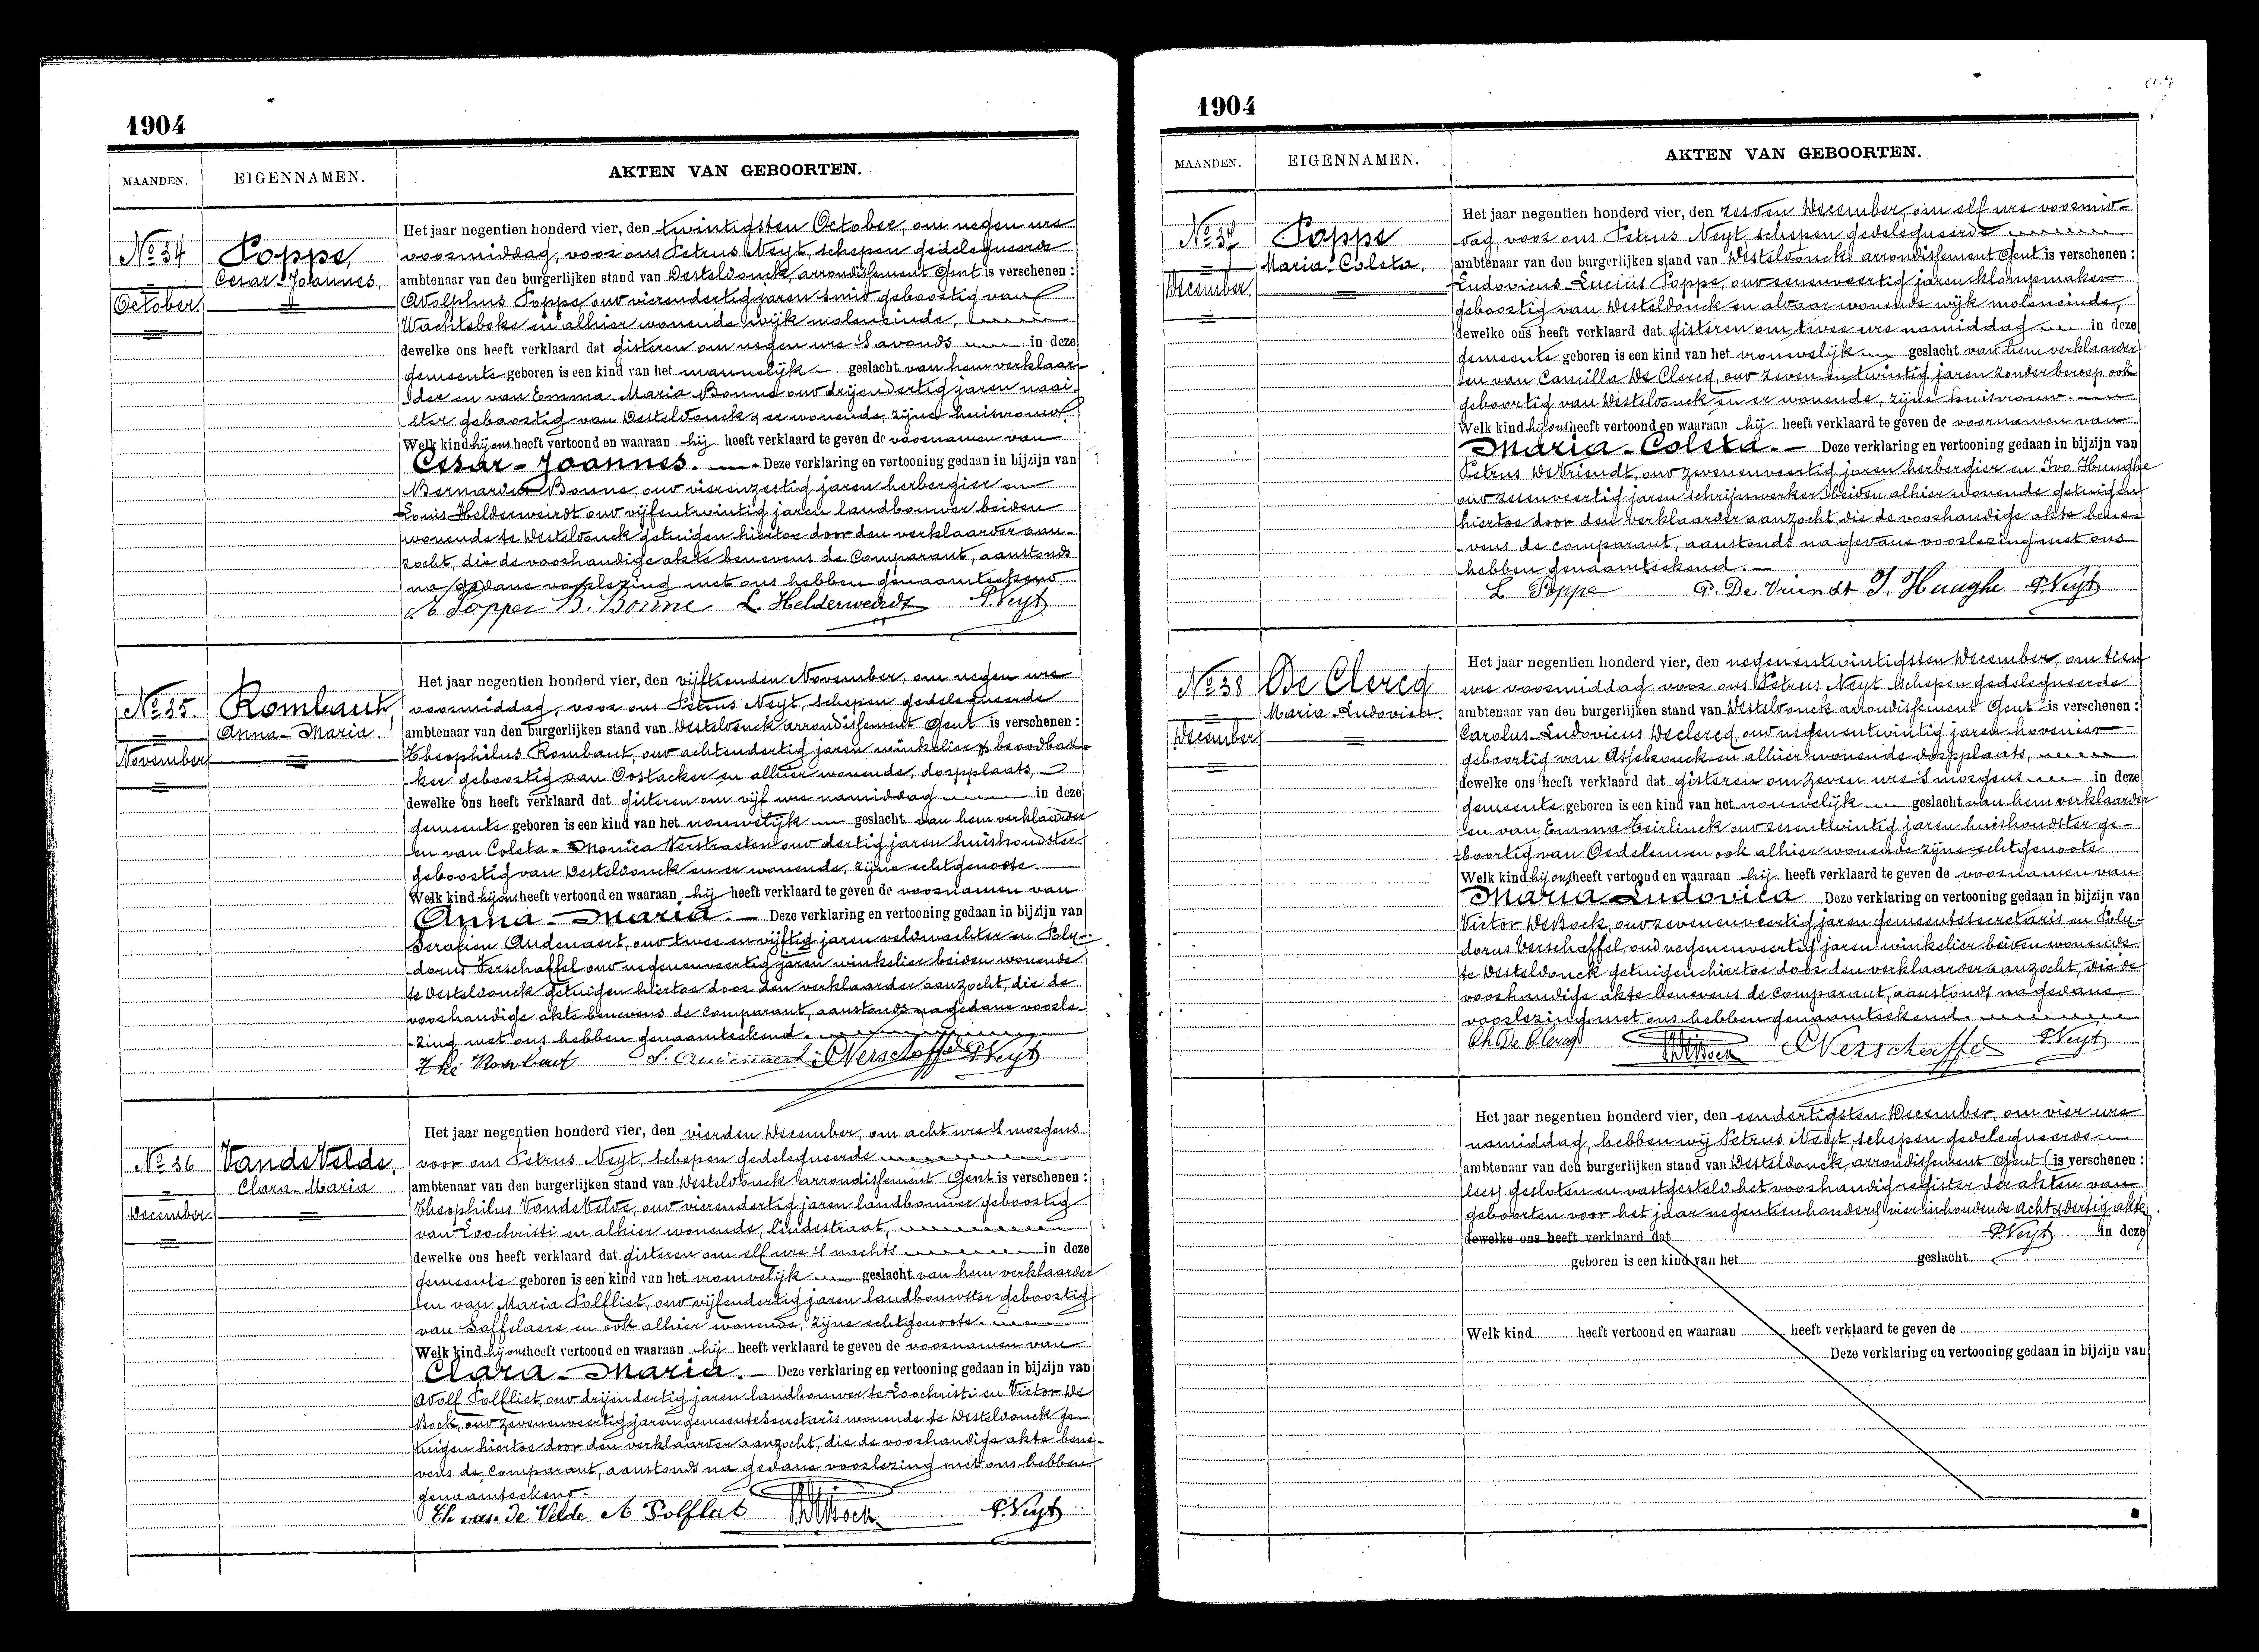 1904
MAANDEN. EIGENNAMEN. AKTEN VAN GEBOORTEN.
No 34
October
Poppe
Cesar-Joannes.
Het jaar negentien honderd vier, den twintigsten October, om negen ure
voormiddag, voor ons Petrus Neyt, schepen gedelegueerde
ambtenaar van den burgerlijken stand van Desteldonck, arrondissement Gent is verschenen :
Adolphus Poppe, oud vierendertig jaren smid geboortig van
Wachtebeke en alhier wonende wijk moleneinde,
dewelke ons heeft verklaard dat gisteren om negen ure 's avonds in deze
gemeente geboren is een kind van het mannelijk geslacht van hem verklaar-
der en van Emma-Maria Bonne oud drijendertig jaren naai-
ster geboortig van Desteldonck & er wonende, zijne huisvrouw
Welk kind hij ons heeft vertoond en waaraan hij heeft verklaard te geven de voornamen van
Cesar-Joannes. Deze verklaring en vertooning gedaan in bijzijn van
Bernardus Bonne, oud vierenzestig jaren herbergier en
Louis Helderweirdt oud vijfentwintig jaren landbouwer beiden
wonende te Desteldonck getuigen hiertoe door den verklaarder aan-
zocht, die de voorhandige akte benevens de Comparant, aanstonds
na gedane voorlezing met ons hebben genaamteekend
A Poppe B. Bonne L. Helderweirdt P. Neyt
No 35.
November
Rombaut
Anna-Maria
Het jaar negentien honderd vier, den vijftienden November, om negen ure
voormiddag, voor ons Petrus Neyt, schepen gedelegueerde
ambtenaar van den burgerlijken stand van Desteldonck arrondissement Gent is verschenen :
Theophilus Rombaut, oud achtendertig jaren winkelier & broodbak-
ker geboortig van Oostacker en alhier wonende, dorpplaats,
dewelke ons heeft verklaard dat gisteren om vijf ure namiddag in deze
gemeente geboren is een kind van het vrouwelijk geslacht van hem verklaarder
en van Coleta-Monica Verstraeten oud dertig jaren huishoudster
geboortig van Desteldonck en er wonende, zijne echtgenoote.
Welk kind hij ons heeft vertoond en waaraan hij heeft verklaard te geven de voornamen van
Anna-Maria. Deze verklaring en vertooning gedaan in bijzijn van
Serafien Audenaert, oud twee en vijftig jaren veldwachter en Poly-
dorus Verschaffel oud negenenveertig jaren winkelier beiden wonende
te Desteldonck getuigen hiertoe door den verklaarder aanzocht, die de
voorhandige akte benevens de comparant, aanstonds na gedane voorle-
zing met ons hebben genaamteekend.
The Rombaut S. Audenaert P Verschaffel P. Neyt
No 36
December
Van de Velde,
Clara-Maria
Het jaar negentien honderd vier, den vierden December, om acht ure 's morgens
voor ons Petrus Neyt, schepen gedelegueerde
ambtenaar van den burgerlijken stand van Desteldonck arrondissement Gent is verschenen :
Theophilus Van de Velde, oud vierendertig jaren landbouwer geboortig
van Loochristi en alhier wonende, lindestraat,
dewelke ons heeft verklaard dat gisteren om elf ure 's nachts in deze
gemeente geboren is een kind van het vrouwelijk geslacht van hem verklaarder
en van Maria Polfliet, oud vijfendertig jaren landbouwster geboortig
van Saffelaere en ook alhier wonende, zijne echtgenoote.
Welk kind hij ons heeft vertoond en waaraan hij heeft verklaard te geven de voornamen van
Clara-Maria. Deze verklaring en vertooning gedaan in bijzijn van
Adolf Polfliet, oud drijendertig jaren landbouwer te Loochristi en Victor De
Bock, oud zevenenveertig jaren gemeentesecretaris wonende te Desteldonck ge-
tuigen hiertoe door den verklaarder aanzocht, die de voorhandige akte bene-
vens de Comparant, aanstonds na gedane voorlezing met ons hebben
genaamteekend.
Th van de Velde A Polfliet VDeBock P. Neyt
1904
MAANDEN. EIGENNAMEN. AKTEN VAN GEBOORTEN.
No 37
December
Poppe
Maria-Coleta.
Het jaar negentien honderd vier, den zesden December, om elf ure voormid-
dag, voor ons Petrus Neyt, schepen gedelegueerde
ambtenaar van den burgerlijken stand van Desteldonck arrondissement Gent is verschenen :
Ludovicus-Lucius Poppe, oud eenenveertig jaren klompmaker
geboortig van Desteldonck en aldaar wonende wijk moleneinde,
dewelke ons heeft verklaard dat gisteren om twee ure namiddag in deze
gemeente geboren is een kind van het vrouwelijk geslacht van hem verklaarder
en van Camilla De Clercq, oud zeven en twintig jaren zonder beroep ook
geboortig van Desteldonck en er wonende, zijne huisvrouw.
Welk kind hij ons heeft vertoond en waaraan hij heeft verklaard te geven de voornamen van
Maria-Coleta. Deze verklaring en vertooning gedaan in bijzijn van
Petrus De Vriendt, oud zevenenveertig jaren herbergier en Ivo Hunghe
oud zesenveertig jaren schrijnwerker beiden alhier wonende getuigen
hiertoe door den verklaarder aanzocht, die de voorhandige akte bene-
vens de comparant, aanstonds na gedane voorlezing met ons
hebben genaamteekend.
L Poppe P. De Vriendt I. Hunghe P. Neyt
No 38
December
De Clercq
Maria-Ludovica.
Het jaar negentien honderd vier, den negenentwintigsten December, om tien
ure voormiddag, voor ons Petrus Neyt schepen gedelegueerde
ambtenaar van den burgerlijken stand van Desteldonck arrondissement Gent is verschenen :
Carolus-Ludovicus Declercq oud negenentwintig jaren hovenier
geboortig van Assebrouck en alhier wonende dorpplaats,
dewelke ons heeft verklaard dat gisteren om zeven ure 's morgens in deze
gemeente geboren is een kind van het vrouwelijk geslacht van hem verklaarder
en van Emma Teirlinck oud zesentwintig jaren huishoudster ge-
boortig van Oedelem en ook alhier wonende zijne echtgenoote
Welk kind hij ons heeft vertoond en waaraan hij heeft verklaard te geven de voornamen van
Maria Ludovica Deze verklaring en vertooning gedaan in bijzijn van
Victor De Bock, oud zevenenveertig jaren gemeentesecretaris en Poly-
dorus Verschaffel, oud negenenveertig jaren winkelier beiden wonende
te Desteldonck getuigen hiertoe door den verklaarder aanzocht, die de
voorhandige akte benevens de comparant, aanstonds na gedane
voorlezing met ons hebben genaamteekend.
Ch De Clercq VDeBock P Verschaffel P. Neyt
Het jaar negentien honderd vier, den eendertigsten December, om vier ure
namiddag, hebben wij Petrus Neyt, schepen gedelegueerde
ambtenaar van den burgerlijken stand van Desteldonck, arrondissement Gent (is verschenen :
lees) gesloten en vastgesteld het voorhandig register der akten van
geboorten voor het jaar negentienhonderd vier inhoudende acht & dertig akte
dewelke ons heeft verklaard dat P. Neyt in deze
geboren is een kind van het geslacht
Welk kind heeft vertoond en waaraan heeft verklaard te geven de
Deze verklaring en vertooning gedaan in bijzijn van